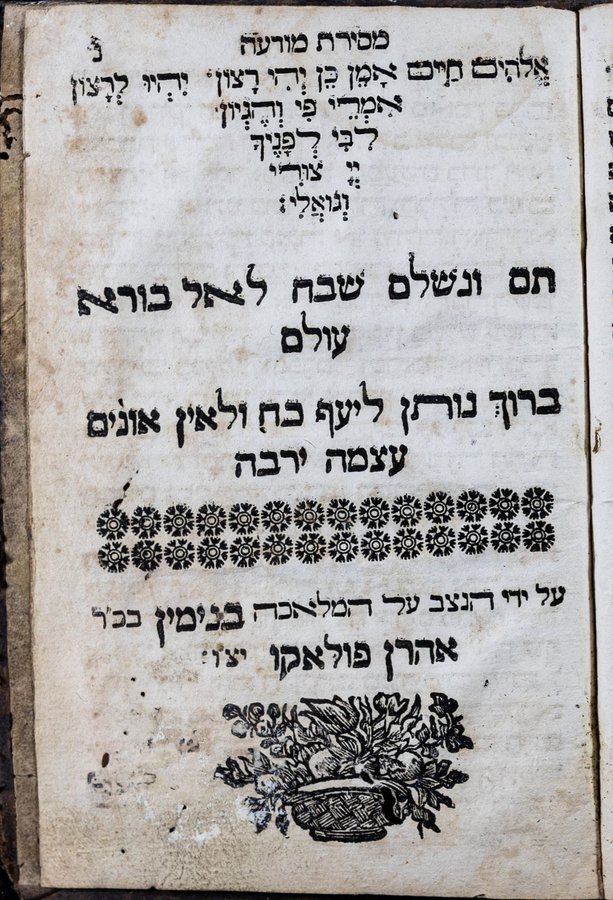 מסירת מורעה
אֱלֹהִים חַיִּים אָמֵן כֵּן יְהִי רָצוֹן׃ יִהְיוּ לְרָצוֹן
אִמְרֵי פִי וְהֶגְיוֹן
לִבִּי לְפָנֶיךָ
יְיָ צוּרִי
וְגוֹאֲלִי׃
תם ונשלם שבח לאל בורא
עולם
ברוך נותן ליעף כח ולאין אונים
עצמה ירבה
על ידי הנצב על המלאכה בנימין בכ״ר
אהרן פולאקו יצ״ו׃